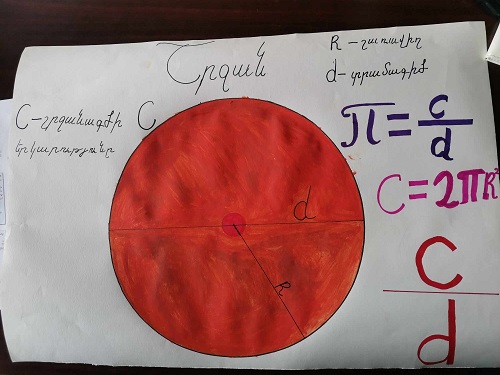 Շրջան
R - շառավիղ
d - տրամագիծ
C - շրջանագծի
երկարությունը
C
π = c/d
C = 2πR²
d
R
C/d